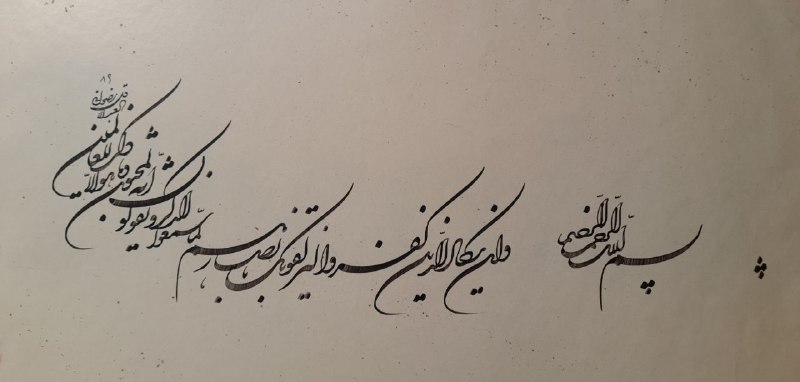 بسم الله الرحمن الرحیم
وان یکاد الذین کفروا لیزلقونک بابصارهم لما سمعوا الذکر ویقولون انه لمجنون وما هو الا ذکر للعالمین